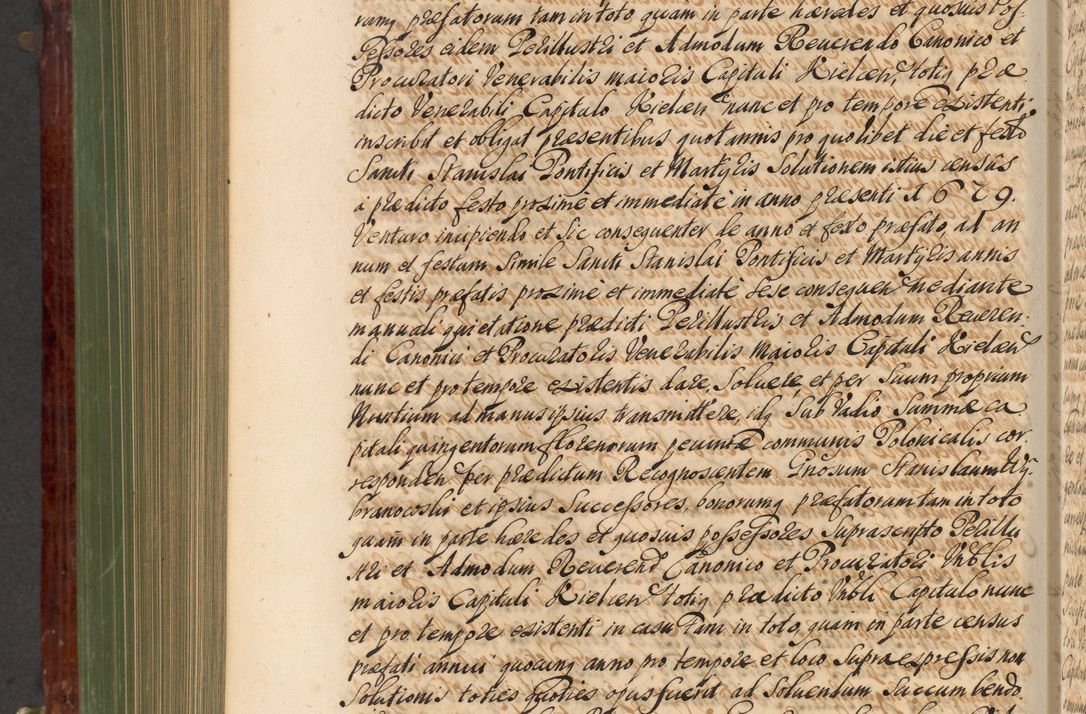 rumq præfatorum tam in toto quam in parte hæredes et quosuis Pos-
sessores eidem Perillustri et Admodum Reuerendo Canonico et
Procuratori Venerabilis maioris Capituli Kielcen totiq præ
dicto Venerabili Capitulo Kielcen nunc et pro tempore existenti
inscribit et obligat præsentibus quotannis pro quolibet die et festo
Sancti Stanislai Pontificis et Martyris Solutionem istius census
a prædicto festo proxime et immediate in anno præsenti 1679.
Venturo incipiendo et sic consequenter de anno et festo præfato, ad an
num et festum simile Sancti Stanislai Pontificis et Martyris annis
et festis præfatis proxime et immediate sese consequen mediante
manuali quietatione prædicti Perillustris et Admodum Reueren-
di Canonici et Procuratoris Venerabilis Maioris Capituli Kielcen
nunc et pro tempore existentis dare, Soluere, et per Suum proprium
Nuntium ad manus ipsius transmittere, idq Sub Vadio Summæ ca
pitali quingentorum florenorum pecuniæ communis Polonicalis cor-
responden per prædictum Recognoscentem Gnosum Stanislaum Wy-
branowski et ipsius Successores, bonorumq præfatorum tam in toto
quam in parte hæredes et quosuis possessores Suprascripto Perillu
stri et Admodum Reuerend Canonico et Procuratori Vnblis
maioris Capituli Kielcen totiq prædicto Vnbli Capitulo nunc
et pro tempore existenti in casu Tam in toto, quam in parte census
præfati annui quocunq anno pro tempore et loco supra expressis non
Solutionis toties quoties opus fuerit ad Soluendum Succumbendo.